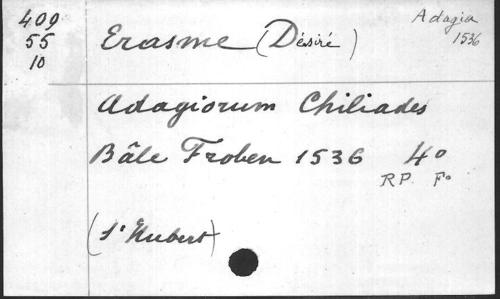 409
55
10
Erasme (Désiré)
Adagia
1536
Adagiorum Chiliades
Bâle Froben 1536 4º
RP. Fº
(St Hubert)